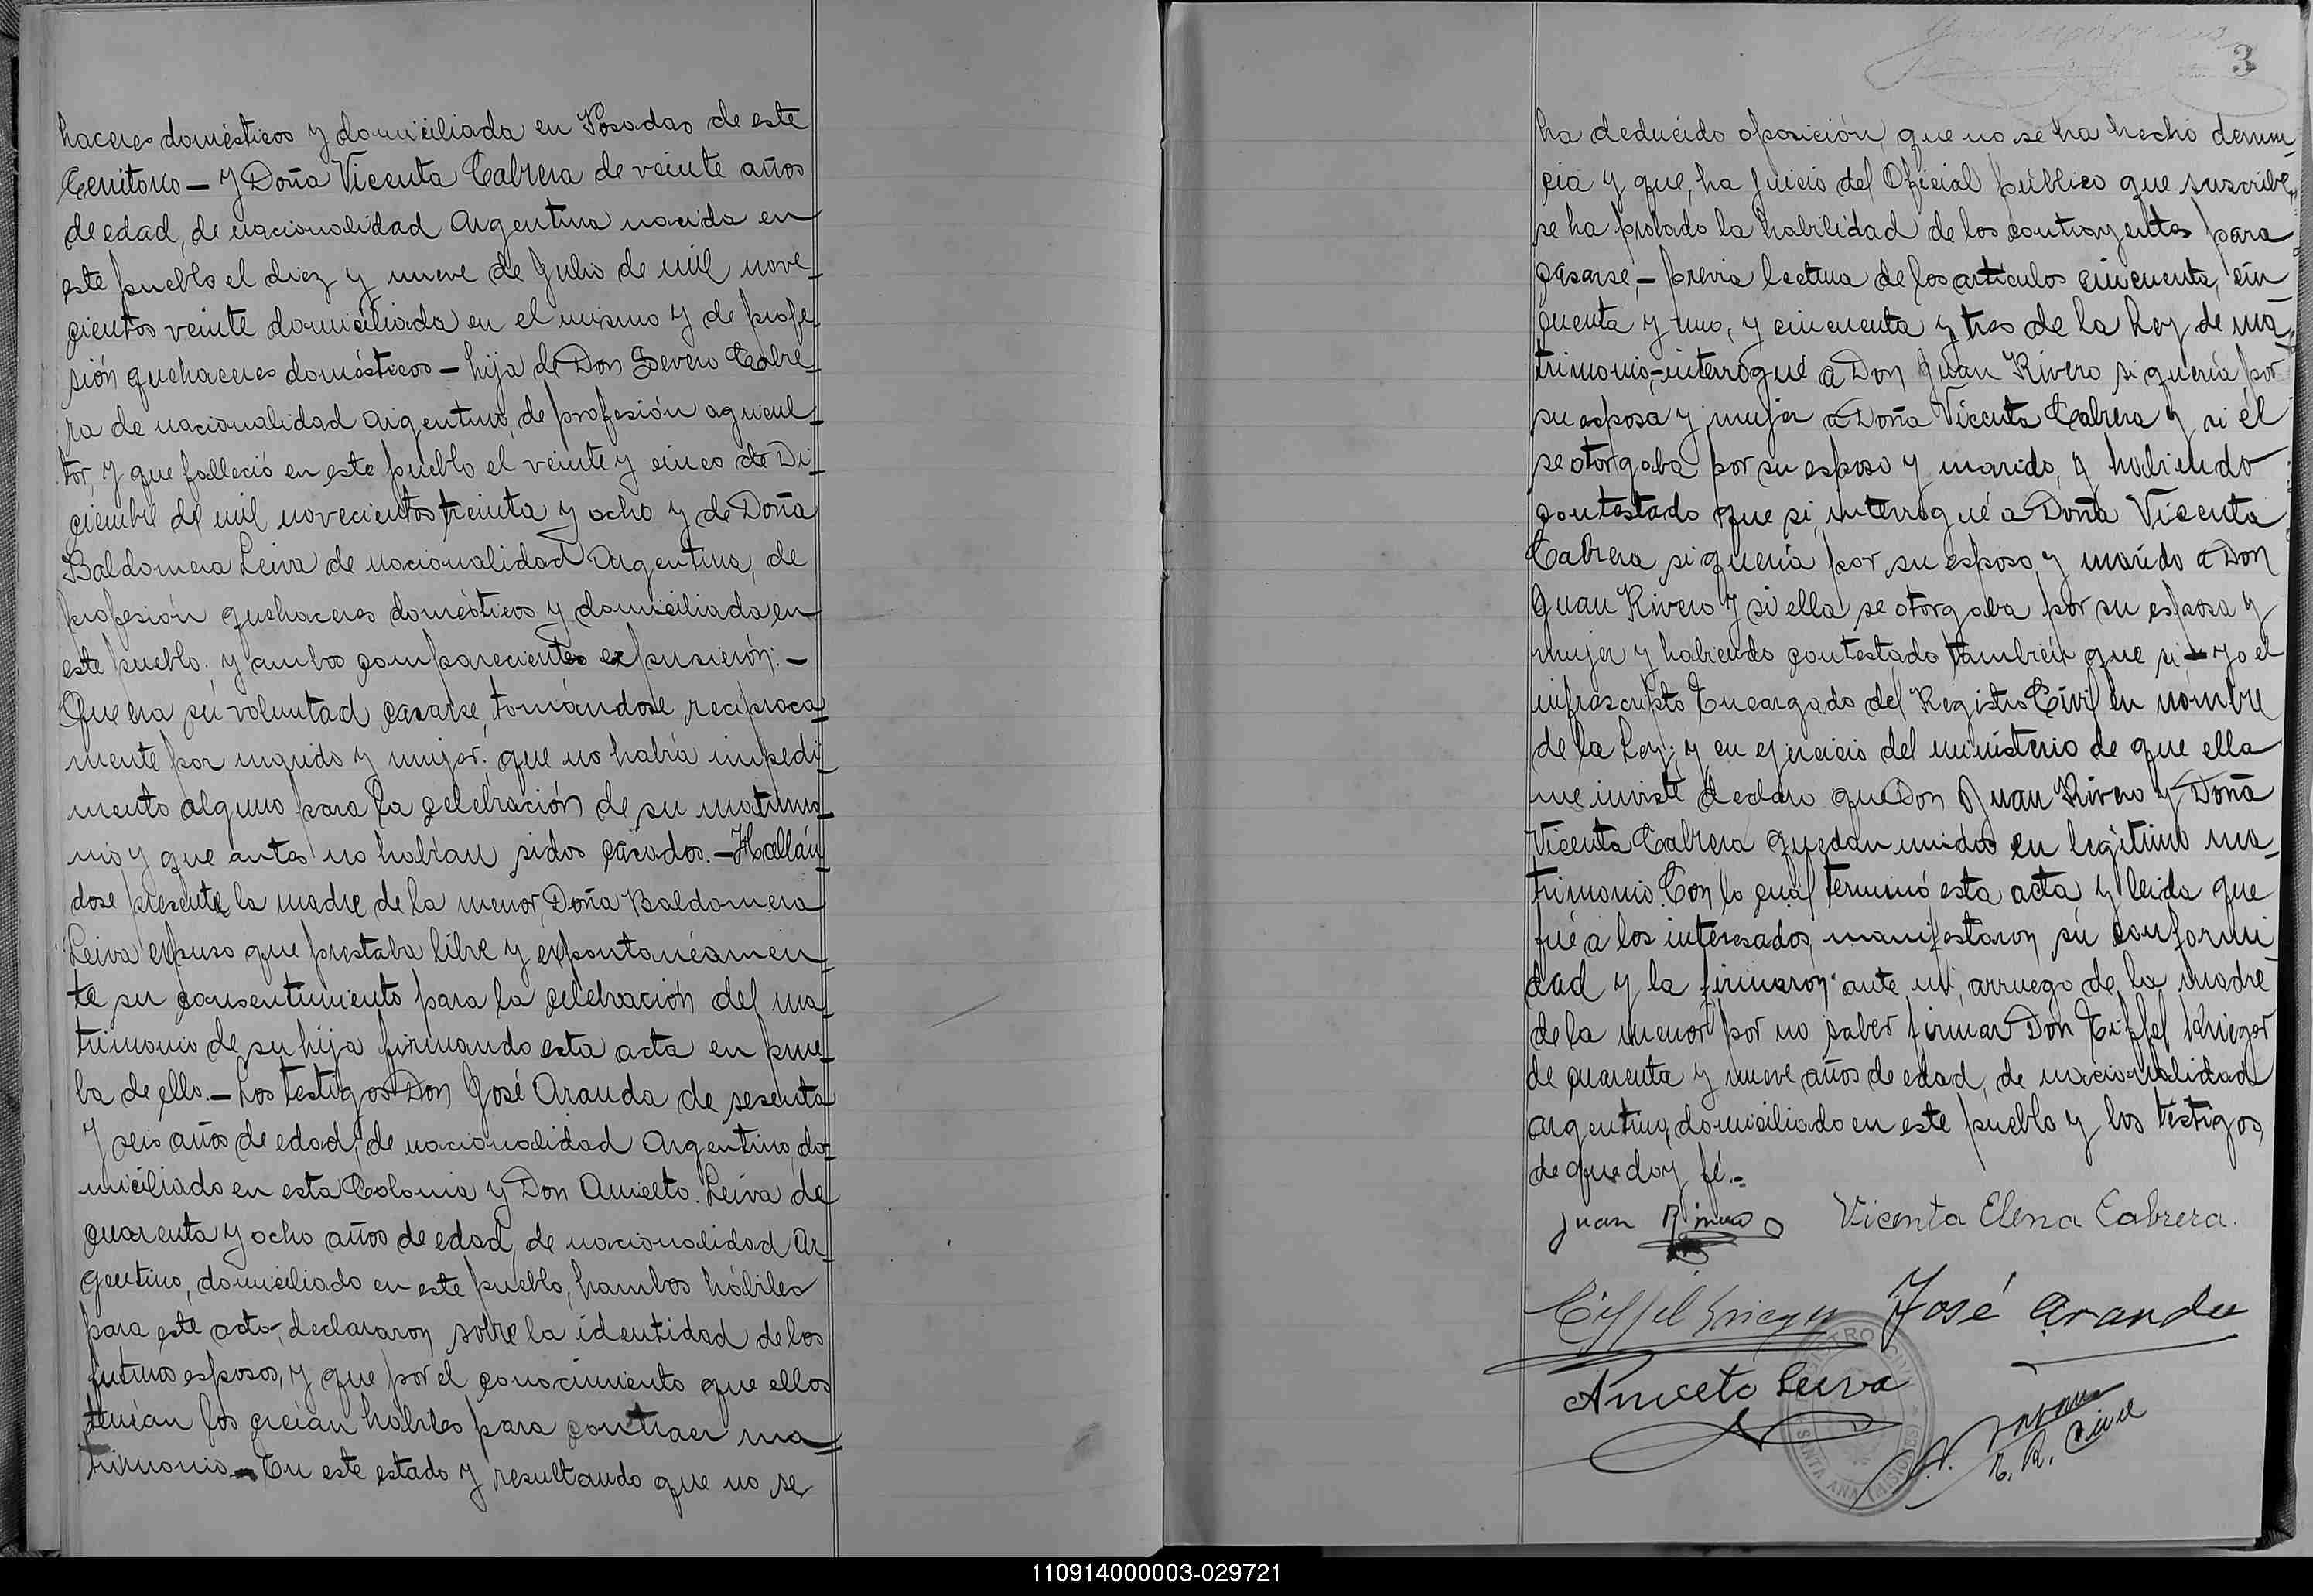 haceres domésticos y domiciliada en Posadas de este
Territorio — y Doña Vicenta Cabrera de veinte años
de edad, de nacionalidad Argentina nacida en
este pueblo el diez y nueve de Julio de mil nove-
cientos veinte domiciliada en el mismo y de profe-
sión quehaceres domésticos — hija de Don Severo Cabre-
ra de nacionalidad argentino, de profesión agricul-
tor, y que falleció en este pueblo el veinte y cinco de Di-
ciembre de mil novecientos treinta y ocho y de Doña
Baldomera Leiva de nacionalidad Argentina, de
profesión quehaceres domésticos y domiciliada en
este pueblo. y ambos comparecientes expusierón: —
Que era sú voluntad casarse, tomándose, reciproca-
mente por marido y mujer; que no había impedi-
mento alguno para la celebración de su matrimo-
nio y que antes no habían sidos casados. — Hallán-
dose presente la madre de la menor, Doña Baldomera
Leiva expuso que prestaba libre y éxpontanéamen-
te su consentimiento para la celebración del ma-
trimonio de su hija firmando esta acta en prue-
ba de ello. — Los testigos Don José Aranda de sesenta
y seis años de edad, de nacionalidad Argentino, do-
miciliado en esta Colonia y Don Aniceto Leiva de
cuarenta y ocho años de edad, de nacionalidad Ar-
gentino, domiciliado en este pueblo, hambos hábiles
para este acto, declararon sobre la identidad de los
futuros esposos, y que por el conocimiento que ellos
tenían los creían habiles para contraer ma-
trimonio. — En este estado y resultando que no se
3
ha deducido oposición, que no se ha hecho denun-
cia y que, ha juicio del Oficial público que suscribe,
se ha probado la habilidad de los contrayentes para
casarse, — previa lectura de los artículos cincuenta, cin-
cuenta y uno, y cincuenta y tres de la Ley de ma-
trimonio, interrogué a Don Juan Rivero si quería por
su esposa y mujer a Doña Vicenta Cabrera y si el
se otorgaba por su esposo y marido, y habiendo
contestado que si, interrogué a Doña Vicenta
Cabrera si quería por su esposo y marido a Don
Juan Rivero y si ella se otorgaba por su esposa y
mujer y habiendo contestado también que si — yo el
infrascripto Encargado del Registro Civil en nombre
de la Ley; y en ejercicio del ministerio de que ella
me inviste declaro que Don Juan Rivero y Doña
Vicenta Cabrera quedan unidos en legítimo ma-
trimonio. Con lo cual terminó esta acta y leida que
fué a los interesados, manifestaron sú conformi-
dad y la firmaron ante mi, arruego de la madre
de la menor por no saber firmar Don Eiffel Krieger
de cuarenta y nueve años de edad, de nacionalidad
argentino, domiciliado en este pueblo y los testigos,
de que doy fé.-
Juan Rivero Vicenta Elena Cabrera.
Eiffel Krieger José Aranda
Aniceto Leiva
E. R. Civil
REGISTRO CIVIL
SANTA ANA (MISIONES)
110914000003-029721